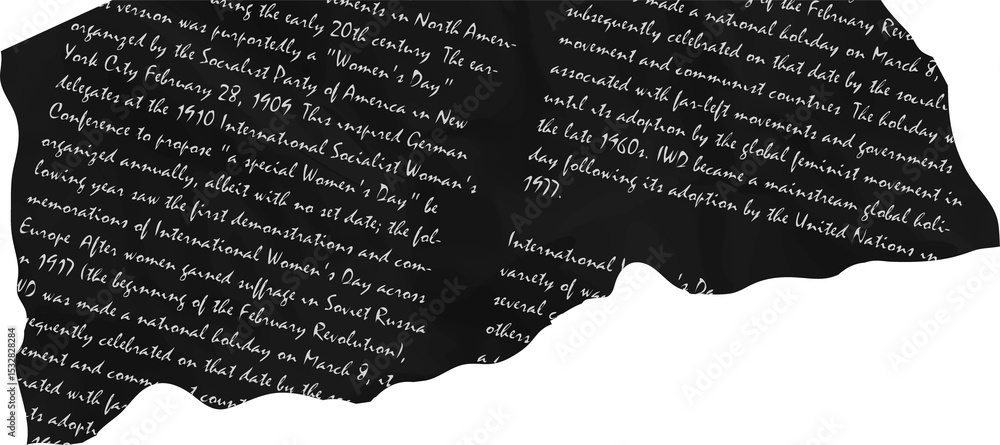 ements in North Ameri-
ring the early 20th century The ear-
version was purportedly a "Women's Day"
organized by the Socialist Party of America in New
York City February 28, 1909. This inspired German
delegates at the 1910 International Socialist Woman's
Conference to propose "a special Women's Day" be
organized annually, albeit with no set date; the fol-
lowing year saw the first demonstrations and com-
memorations of International Women's Day across
Europe After women gained suffrage in Soviet Russia
n 1917 (the beginning of the February Revolution),
WD was made a national holiday on March 8, it
equently celebrated on that date by the
ement and comm
iated with fa
ts adopti
of the February Revo
made a national holiday on March 8,
subsequently celebrated on that date by the sociali
movement and communist countries The holiday w
associated with far-left movements and governments
until its adoption by the global feminist movement in
the late 1960s. IWD became a mainstream global holi-
day following its adoption by the United Nations in
1977.
International W 's Da
variety of wa
several c
others
a
Adobe Stock | #1532828284